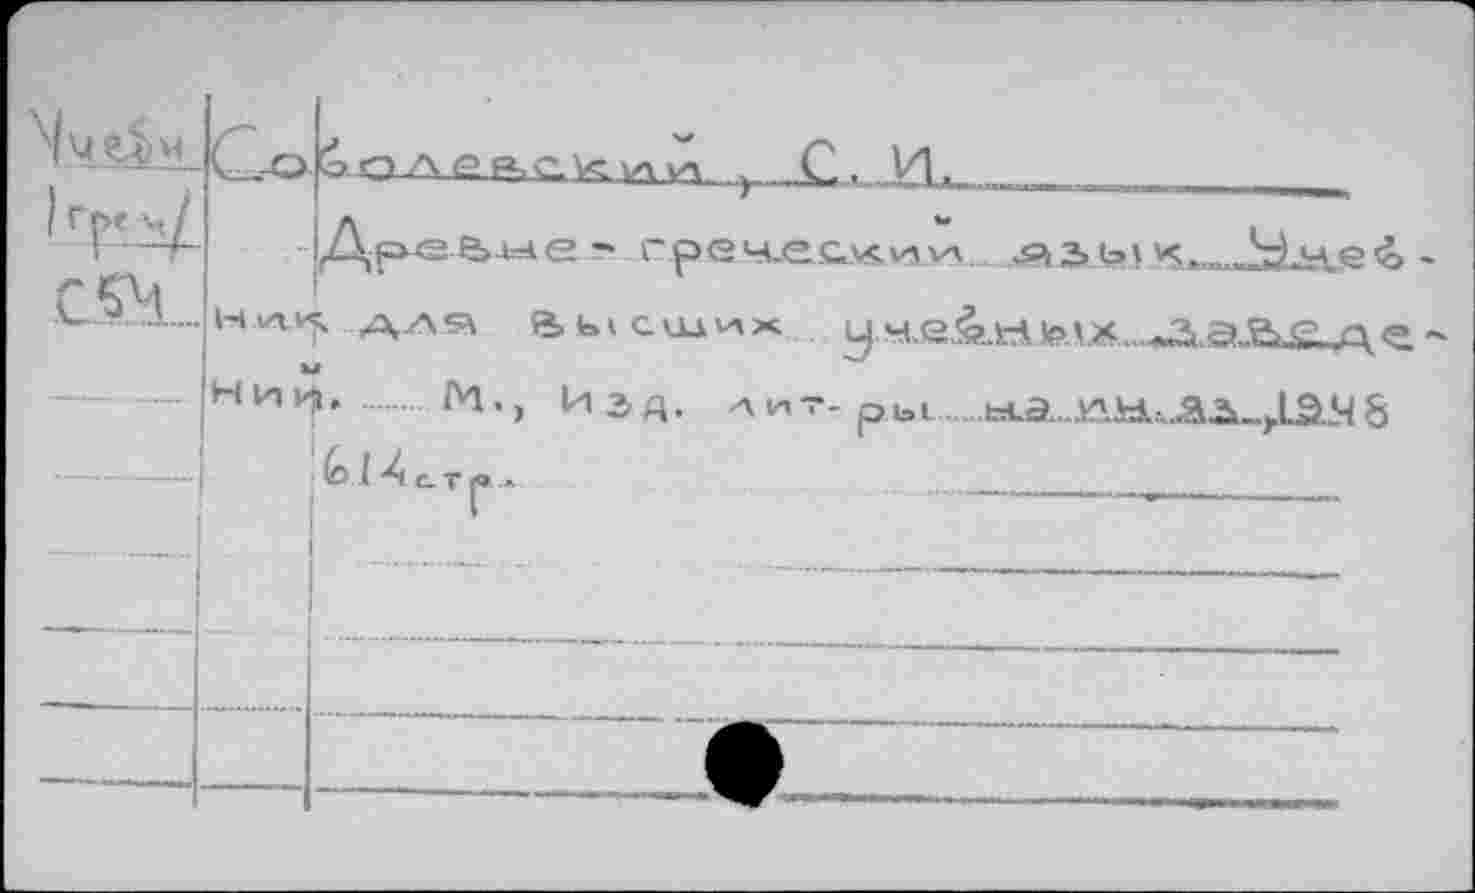 Учебн
/греч/
С54
Соболевский, С. И.
Древне-греческий язык. Учеб-
ник для высших учебных заведе-
ний. М., Изд. лит-ры на ин. яз., 1948
614стр.